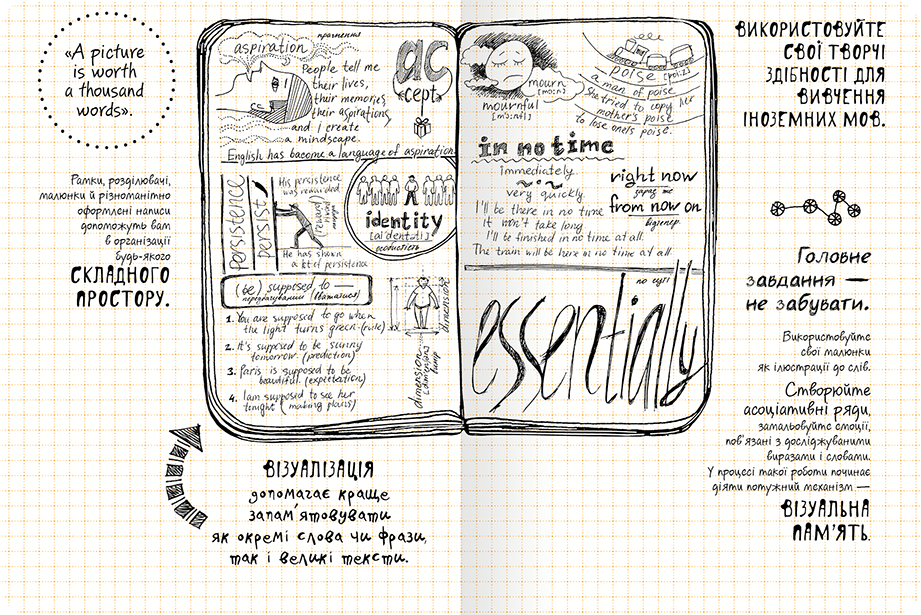 «A picture
is worth
a thousand
words».
Рамки, розділювачі,
малюнки й різноманітно
оформлені написи
допоможуть вам
в організації
будь-якого
СКЛАДНОГО
ПРОСТОРУ.
aspiration
прагнення
People tell me
their lives,
their memories,
their aspirations,
and i create
a mindscape.
English has become a language of aspiration
ac
«cept»
Persistence
persist
His persistence
was rewarded
(reward)
He has shown
a lot of persistence
identity
[aiˈdentəti]
особистість
(be) supposed to —
1. You are supposed to go when
the light turns green. (rule)
2. It's supposed to be sunny
tomorrow. (prediction)
3. Paris is supposed to be
beautiful. (expectation)
4. I am supposed to see her
tonight (making plans)
dimension
dimension
mourn
[mɔ:n]
mournful
[mɔ:nfl]
poise
[pɔiz]
a man of poise
She tried to copy her
mother's poise
to lose one's poise.
in no time
immediately
very quickly
I'll be there in no time
it won't take long
I'll be finished in no time at all.
The train will be here in no time at all.
right now
зараз же
from now on
відтепер
по суті
essentially
ВИКОРИСТОВУЙТЕ
СВОЇ ТВОРЧІ
ЗДІБНОСТІ ДЛЯ
ВИВЧЕННЯ
ІНОЗЕМНИХ МОВ.
Головне
завдання —
не забувати.
Використовуйте
свої малюнки
як ілюстрації до слів.
Створюйте
асоціативні ряди,
замальовуйте емоції,
пов'язані з досліджуваними
виразами і словами.
У процесі такої роботи починає
діяти потужний механізм —
ВІЗУАЛЬНА
ПАМ'ЯТЬ.
ВІЗУАЛІЗАЦІЯ
допомагає краще
запам'ятовувати
як окремі слова чи фрази,
так і великі тексти.